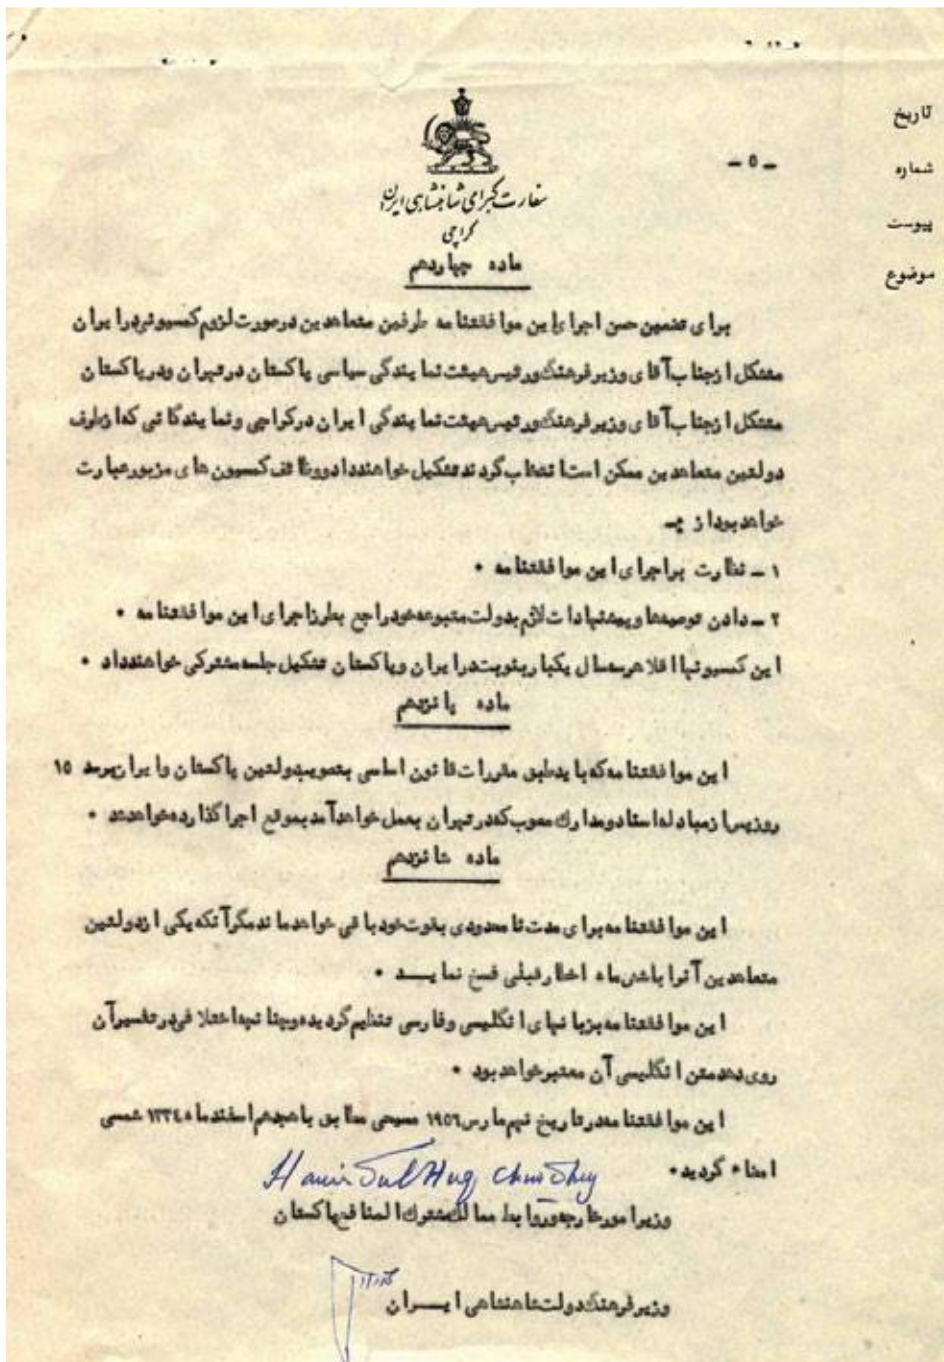 تاریخ
شماره
پیوست
موضوع
ـ ٥ ـ
سفارت کبرای شاهنشاهی ایران
کراچی
ماده چهاردهم
برای تضمین حسن اجرای این موافقتنامه طرفین متعاهدین در صورت لزوم کمسیونی در ایران
متشکل از جناب آقای وزیر فرهنگ و رئیس هیئت نمایندگی سیاسی پاکستان در تهران و در پاکستان
متشکل از جناب آقای وزیر فرهنگ و رئیس هیئت نمایندگی ایران در کراچی و نمایندگانی که از طرف
دولتین متعاهدین ممکن است انتخاب گردند تشکیل خواهند داد و وظائف کمسیون های مزبور عبارت
خواهد بود از :ـ
١ ـ نظارت بر اجرای این موافقتنامه ٠
٢ ـ دادن توصیه‌ها و پیشنهادات لازم بدولت متبوعه خود راجع بطرز اجرای این موافقتنامه ٠
این کمسیونها اقلا هر سه سال یکبار بنوبت در ایران و پاکستان تشکیل جلسه مشترکی خواهند داد ٠
ماده پانزدهم
این موافقتنامه که باید طبق مقررات قانون اساسی بتصویب دولتین پاکستان و ایران برسد ١٥
روز پس از مبادله اسناد و مدارک مصوب که در تهران بعمل خواهد آمد بموقع اجرا گذارده خواهد شد ٠
ماده شانزدهم
این موافقتنامه برای مدت نامحدودی بقوت خود باقی خواهد ماند مگر آنکه یکی از دولتین
متعاهدین آنرا با شش ماه اخطار قبلی فسخ نمایـــد ٠
این موافقتنامه بزبانهای انگلیسی و فارسی تنظیم گردیده و چنانچه اختلافی در تفسیر آن
روی دهد متن انگلیسی آن معتبر خواهد بود ٠
این موافقتنامه در تاریخ نهم مارس ١٩٥٦ مسیحی مطابق با هیجدهم اسفند ماه ١٣٣٤ شمسی
امضاء گردید ٠
Hamidul Huq Chowdhury
وزیر امور خارجه و روابط ممالک مشترک المنافع پاکستان
وزیر فرهنگ دولت شاهنشاهی ایـــران